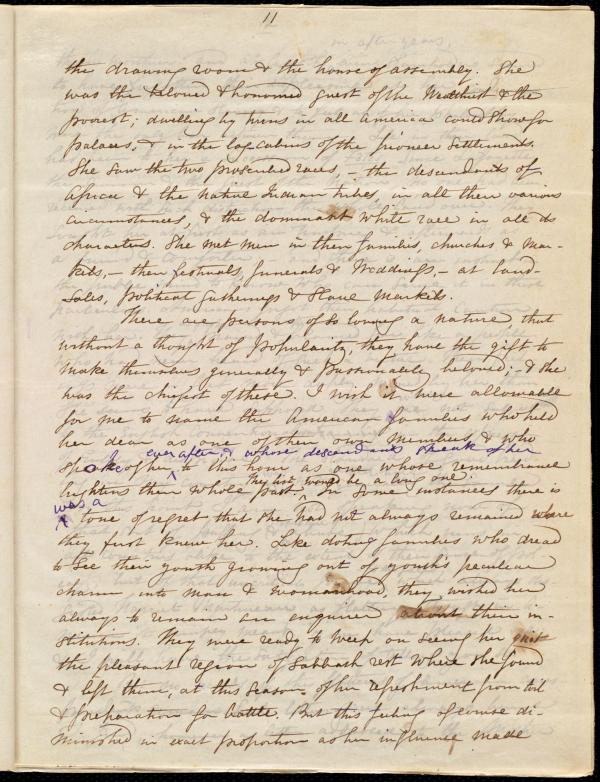 11
in after years,
the drawing room & the house of assembly. She
was the beloved & honoured guest of the Wealthiest & the
poorest; dwelling by turns in all America could show for
palaces, & in the log cabins of the pioneer settlements.
She saw the two proscribed races, – the descendants of
Africa & the native Indian tribes, in all their various
circumstances, & the dominant white race in all its
characters. She met men in their families, churches & Mar-
kets, – their festivals, funerals & Weddings, – at land-
Sales, political gatherings & Slave Markets.
There are persons of so loving a nature that
without a thought of popularity, they have the gift to
make themselves generally & passionately beloved; – & she
was the chiefest of these. I wish it were allowable
for me to name the American families who held
her dear as one of their own members & who
ever after; & whose descendants speak of her
spoke of her to this hour as one whose remembrance
They list would be a long one.
brightens their whole past. In some instances there is
was a
tone of regret that she had not always remained where
they first knew her. Like doting families who dread
to see their youth growing out of youth's peculiar
charm into man & womanhood, they wished her
always to remain an enquirer about their in-
stitutions. They were ready to weep on seeing her quit
the pleasant region of Sabbath rest where she found
& left them, at this season of her refreshment from toil
& preparation for battle. But this feeling of course di-
minished in exact proportion as her influence made